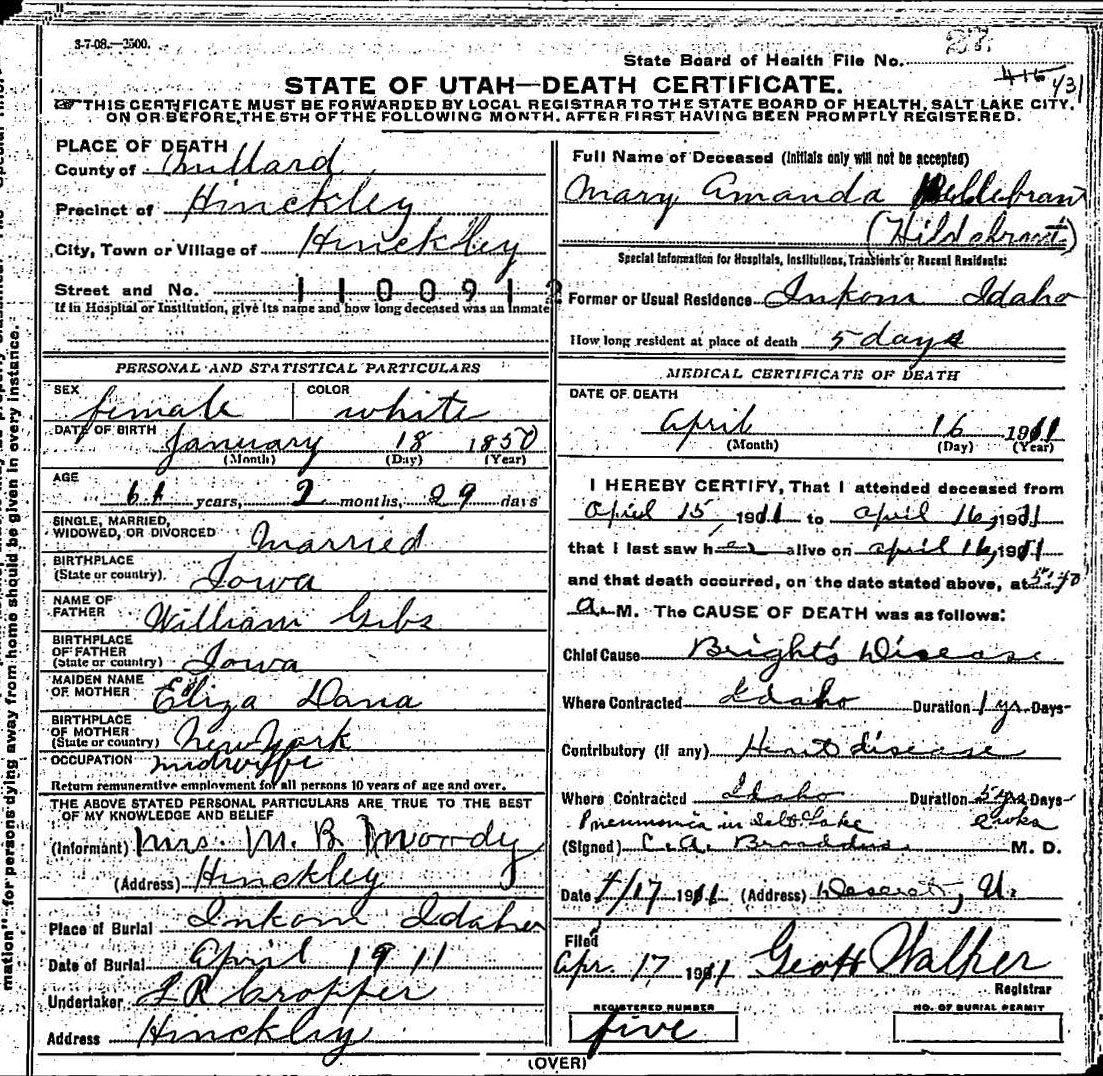 3-7-08.—2500.
27.
State Board of Health File No.
416 431
STATE OF UTAH—DEATH CERTIFICATE.
☞THIS CERTIFICATE MUST BE FORWARDED BY LOCAL REGISTRAR TO THE STATE BOARD OF HEALTH, SALT LAKE CITY,
ON OR BEFORE THE 5TH OF THE FOLLOWING MONTH, AFTER FIRST HAVING BEEN PROMPTLY REGISTERED.
PLACE OF DEATH
County of Millard
Precinct of Hinckley
City, Town or Village of Hinckley
Street and No. 1100912
If in Hospital or Institution, give its name and how long deceased was an Inmate
PERSONAL AND STATISTICAL PARTICULARS
SEX female COLOR white
DATE OF BIRTH January 18 1850
(Month) (Day) (Year)
AGE 61 years, 2 months, 29 days
SINGLE, MARRIED,
WIDOWED, OR DIVORCED Married
BIRTHPLACE
(State or country). Iowa
NAME OF
FATHER William Gibs
BIRTHPLACE
OF FATHER
(State or country) Iowa
MAIDEN NAME
OF MOTHER Eliza Dana
BIRTHPLACE
OF MOTHER
(State or country) New York
OCCUPATION midwife
Return remunerative employment for all persons 10 years of age and over.
THE ABOVE STATED PERSONAL PARTICULARS ARE TRUE TO THE BEST
OF MY KNOWLEDGE AND BELIEF
(Informant) Mrs. M. B. Moody
(Address) Hinckley
Place of Burial Inkom Idaho
Date of Burial April 19 11
Undertaker Cropper
Address Hinckley
Full Name of Deceased (Initials only will not be accepted)
Mary Amanda Helldebran
(Hildebrant)
Special Information for Hospitals, Institutions, Transients or Recent Residents:
Former or Usual Residence Inkom Idaho
How long resident at place of death 5 days
MEDICAL CERTIFICATE OF DEATH
DATE OF DEATH
April 16 1911
(Month) (Day) (Year)
I HEREBY CERTIFY, That I attended deceased from
April 15, 1911 to April 16, 1911
that I last saw her alive on April 16, 1911
and that death occurred, on the date stated above, at 5:40
a. M. The CAUSE OF DEATH was as follows:
Chief Cause Bright's Disease
Where Contracted Idaho Duration 1 yr Days
Contributory (if any) Heart disease
Where Contracted Idaho Duration 5 yrs Days
Pneumonia in Salt Lake
(Signed) C. A. Broaddus. M. D.
Date 4/17 1911 (Address) Deseret, U.
Filed
Apr. 17 1911 Walker
Registrar
REGISTERED NUMBER
five
NO. OF BURIAL PERMIT
(OVER)
mation" for persons dying away from home should be given in every instance.